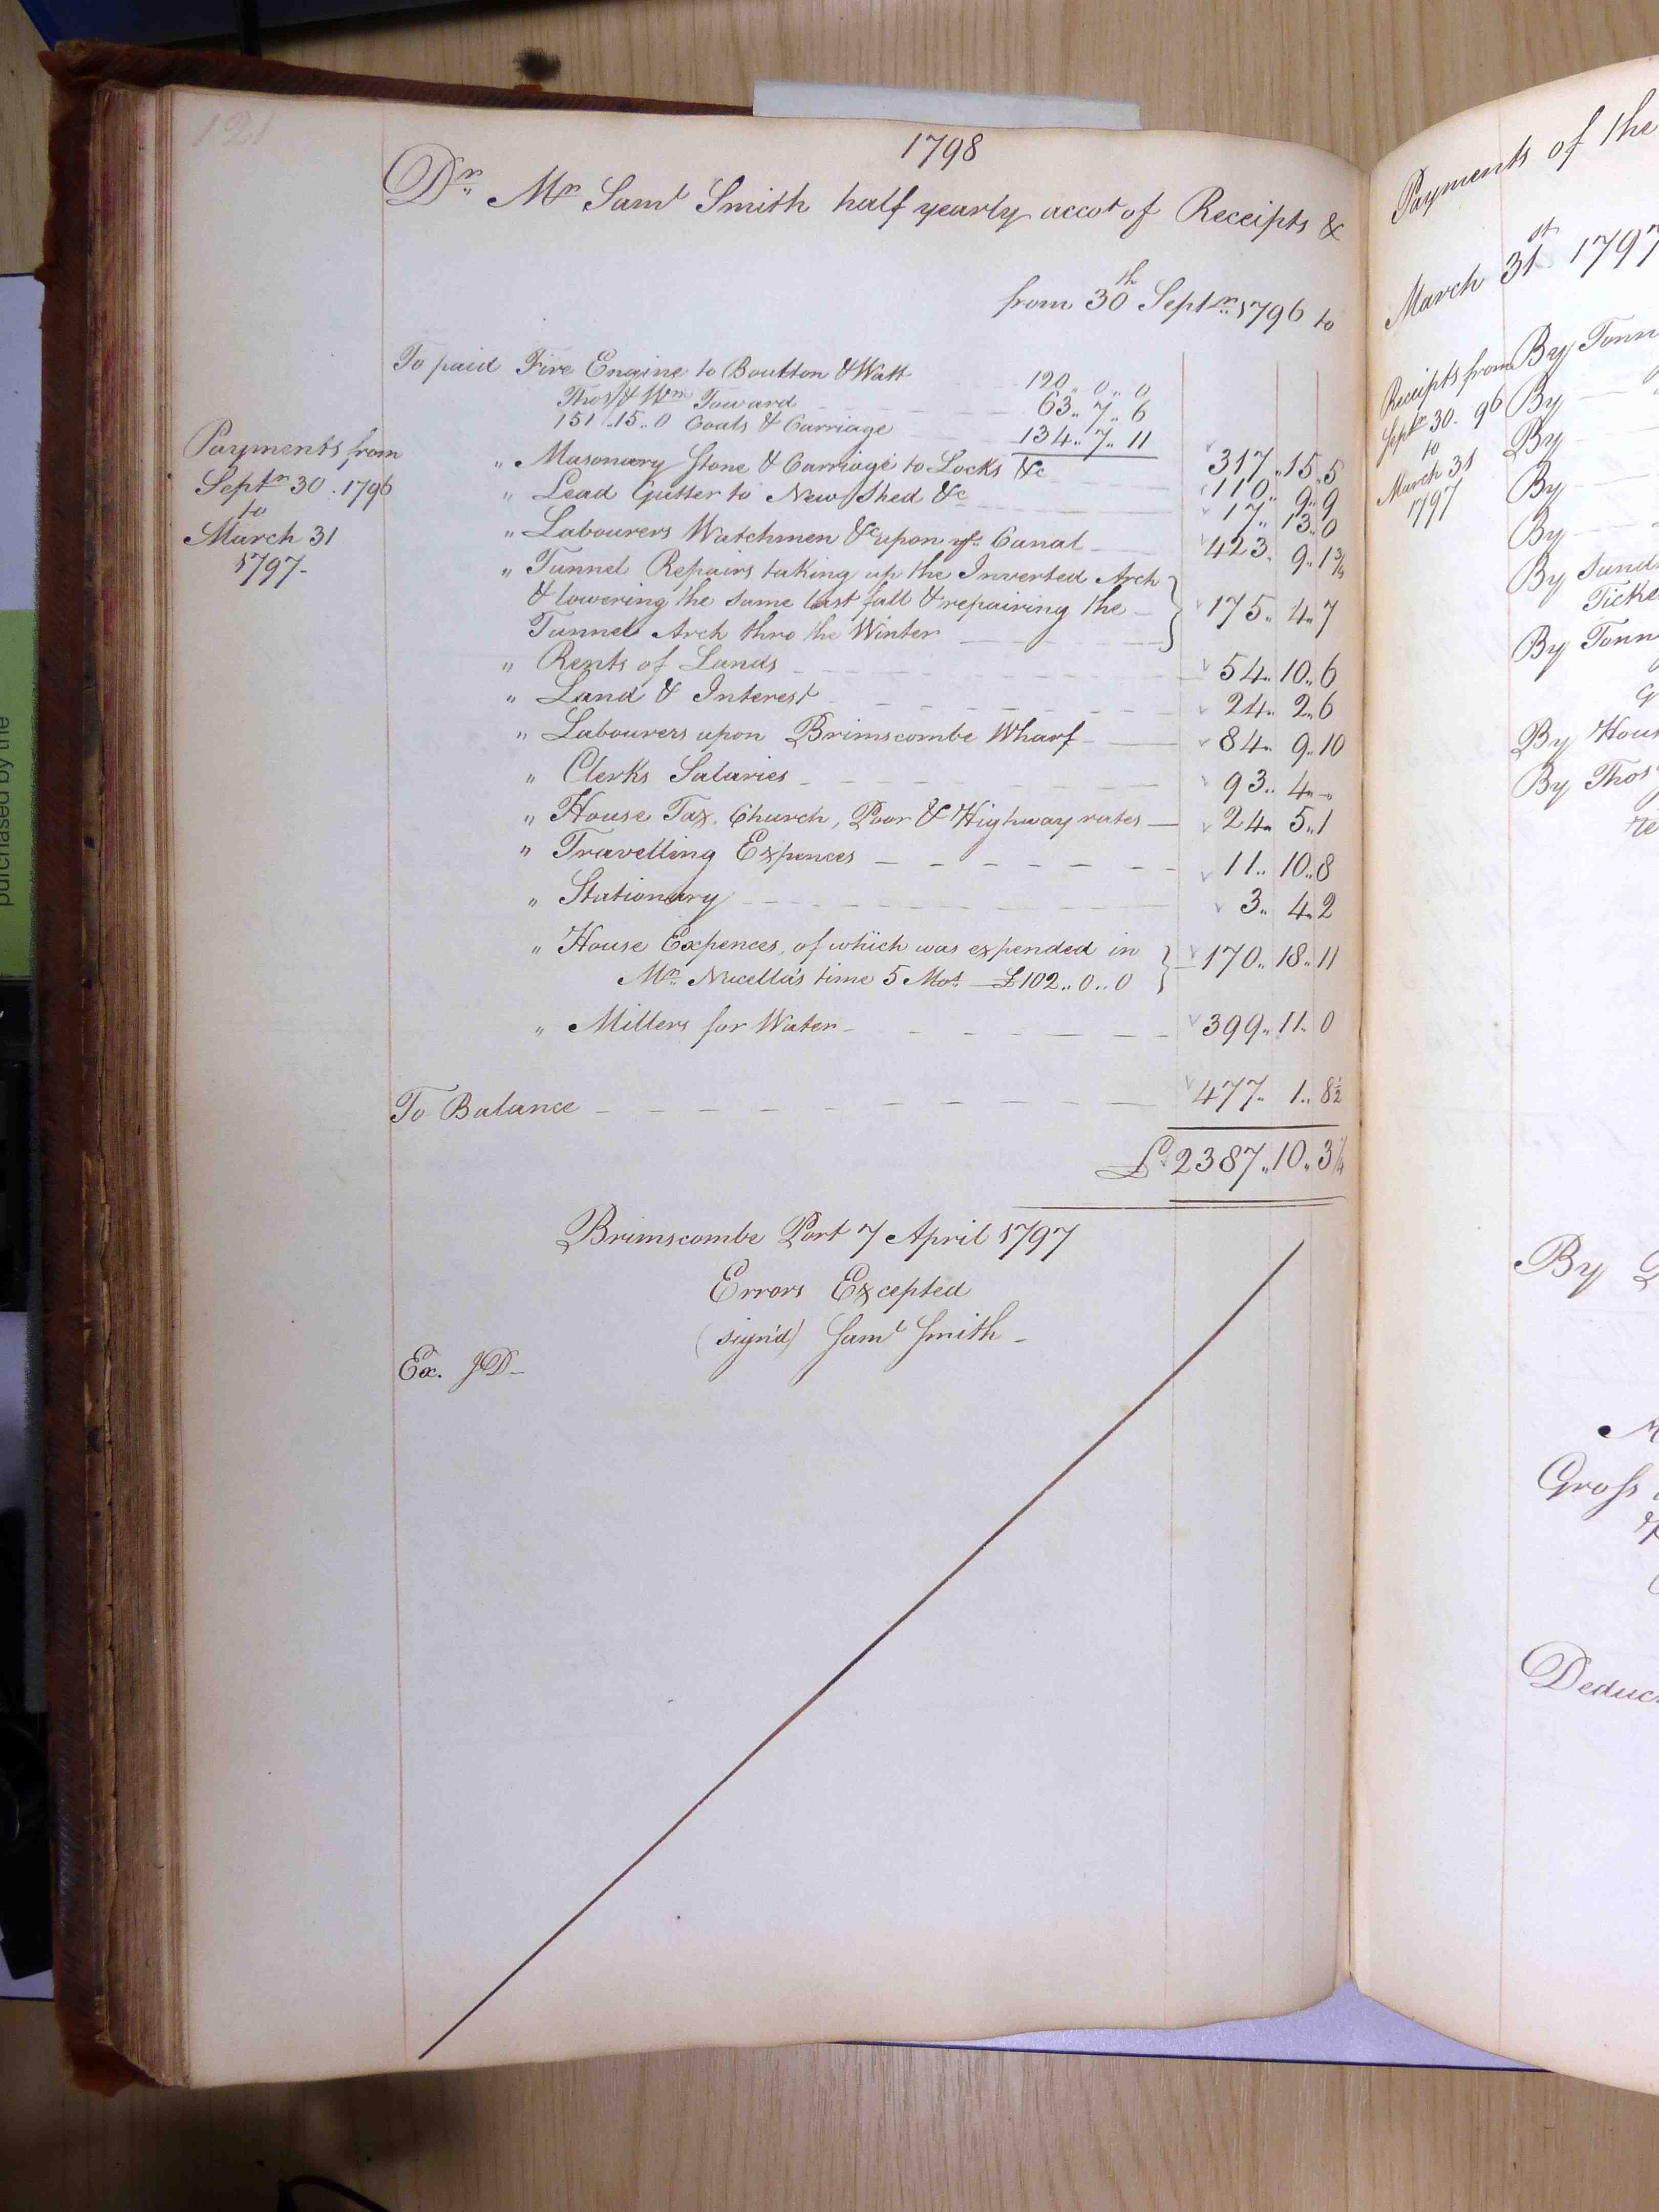 121
1798
Dr. Mr Saml Smith half yearly accot of Receipts &
from 30th Septr. 1796 to
To paid Fire Engine to Boulton & Watt 120 .. 0 .. 0
Thos & Wm Toward 63 .. 7 .. 6
151 .. 15 .. 0 Coals & Carriage 134 .. 7 .. 11
317 .. 15 .. 5
" Masonary Stone & Carriage to Locks &c 110 .. 9 .. 9
" Lead Gutter to New Shed &c 17 .. 13 .. 0
" Labourers Watchmen &c upon ye Canal 423 .. 9 .. 1 3/4
" Tunnel Repairs taking up the Inverted Arch
& lowering the same last fall & repairing the 175 .. 4 .. 7
Tunnel Arch thro the Winter
" Rents of Lands 54 .. 10 .. 6
" Land & Interest 24 .. 2 .. 6
" Labourers upon Brimscombe Wharf 84 .. 9 .. 10
" Clerks Salaries 93 .. 4 .. -
" House Tax, Church, Poor & Highway rates 24 .. 5 .. 1
" Travelling Expences 11 .. 10 .. 8
" Stationary 3 .. 4 .. 2
" House Expences, of which was expended in
Mr. Nucella's time 5 Mos. £102 .. 0 .. 0 170 .. 18 .. 11
" Millers for Water 399 .. 11 .. 0
To Balance 477 .. 1 .. 8 1/2
£ 2387 .. 10 .. 3 1/4
Brimscombe Port 7 April 1797
Errors Excepted
(sign'd) Saml Smith
Ex. JD
Payments from
Septr 30. 1796
to
March 31
1797
Payments of the
March 31st 1797
Receipts from
Septr 30. 96
to
March 31
1797
By Tonn
By
By
By
By
By Sund
Ticke
By Tonn
By Hous
By Thos
By
Gross
Deduc
purchased by the